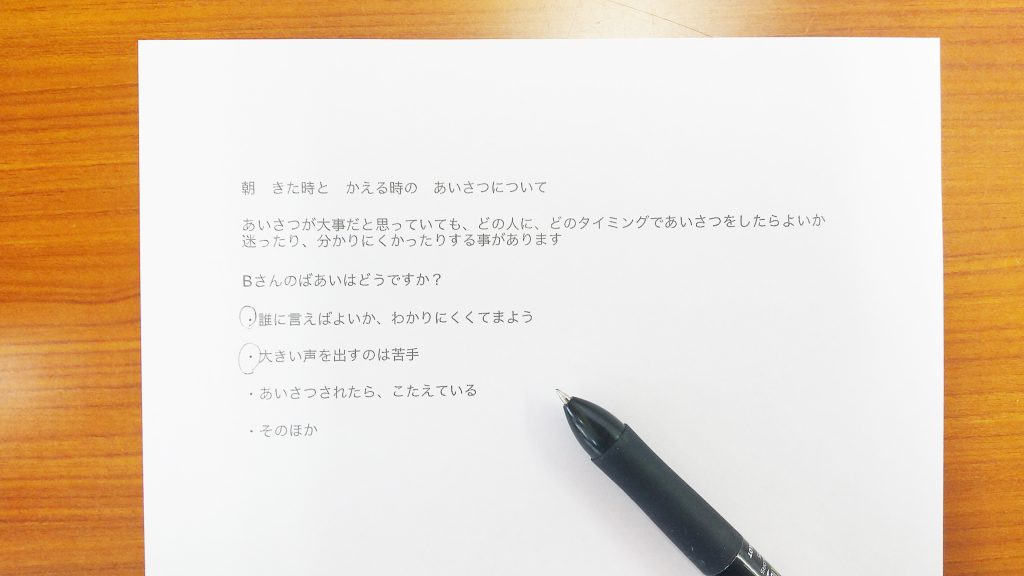 朝　きた時と　かえる時の　あいさつについて
あいさつが大事だと思っていても、どの人に、どのタイミングであいさつをしたらよいか
迷ったり、分かりにくかったりする事があります
Bさんのばあいはどうですか？
・誰に言えばよいか、わかりにくくてまよう
・大きい声を出すのは苦手
・あいさつされたら、こたえている
・そのほか